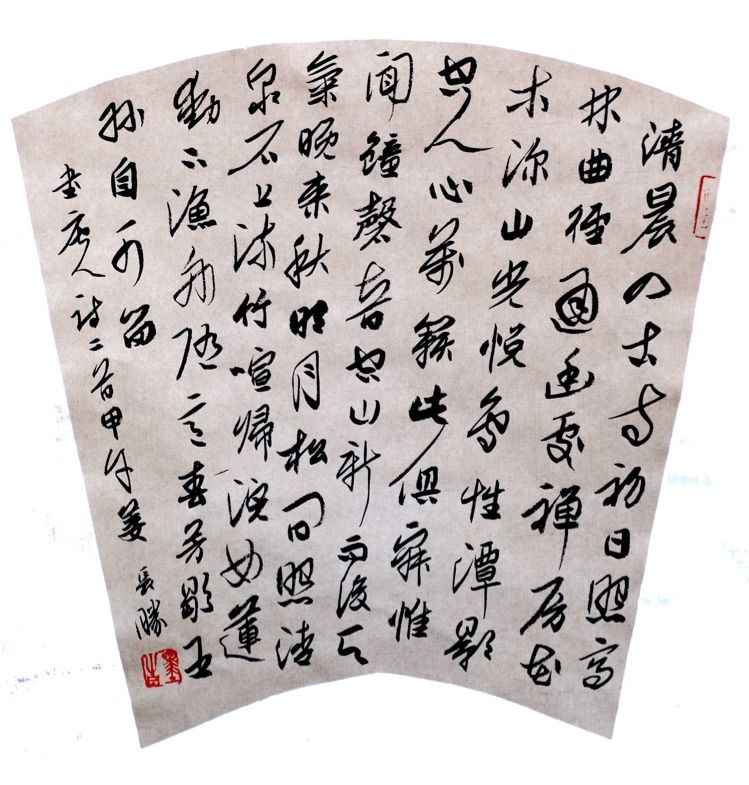 清晨入古寺初日照高
林曲徑通幽處禅房花
木深山光悦鸟性潭影
空人心萬籟此俱寂惟
闻鐘磬音空山新雨後天
氣晚来秋明月松间照清
泉石上流竹喧歸浣女蓮
動下漁舟随意春芳歇王
孙自可留
書唐人诗二首甲午姜長勝